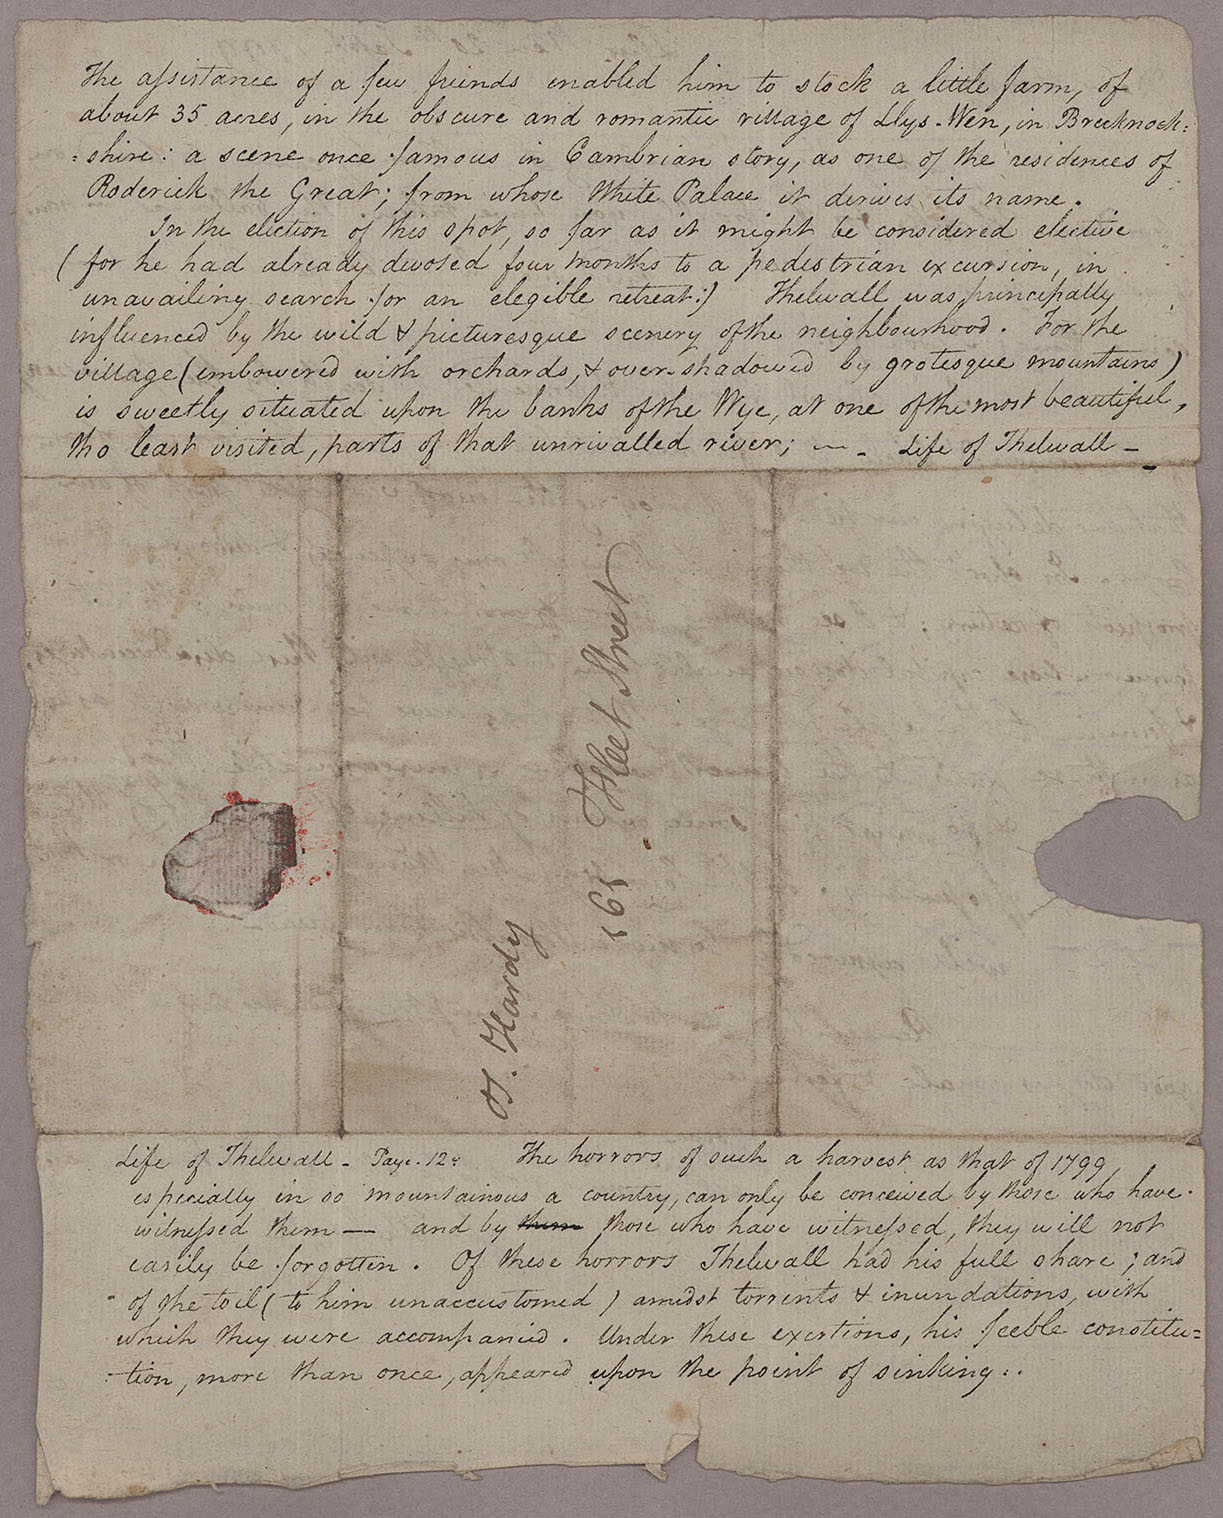 The assistance of a few friends enabled him to stock a little farm, of
about 35 acres, in the obscure and romantic village of Llys-Wen, in Brecknock=
=shire: a scene once famous in Cambrian story, as one of the residences of
Roderick the Great; from whose White Palace it derives its name.
In the election of this spot, so far as it might be considered elective
(for he had already devoted four months to a pedestrian excursion, in
unavailing search for an elegible retreat:) Thelwall was principally
influenced by the wild & picturesque scenery of the neighbourhood. For the
village (embowered with orchards, & over-shadowed by grotesque mountains)
is sweetly situated upon the banks of the Wye, at one of the most beautiful,
tho least visited, parts of that unrivalled river; — - Life of Thelwall -
T. Hardy
161 Fleet Street
Life of Thelwall - Page. 12. The horrors of such a harvest as that of 1799,
especially in so mountainous a country, can only be conceived by those who have
witnessed them — and by them those who have witnessed, they will not
easily be forgotten. Of these horrors Thelwall had his full share; and
of the toil (to him unaccustomed) amidst torrents & inundations, with
which they were accompanied. Under these exertions, his feeble constitu=
tion, more than once, appeared upon the point of sinking..